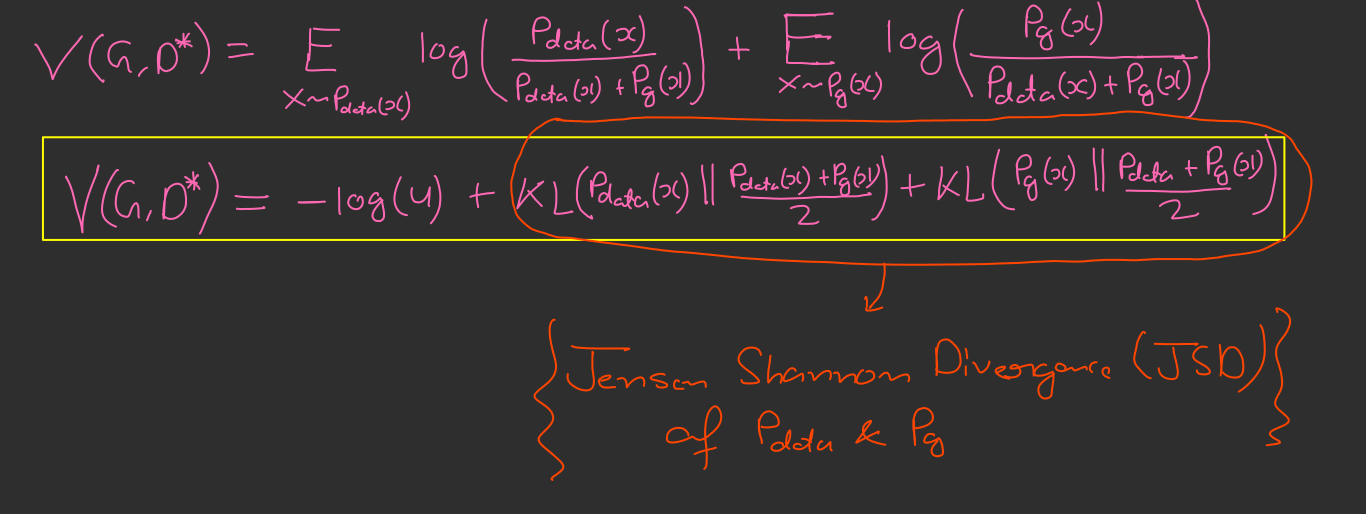 V(G,D*) = E_{x~Pdata(x)} log(Pdata(x) / (Pdata(x) + Pg(x))) + E_{x~Pg(x)} log(Pg(x) / (Pdata(x) + Pg(x)))
V(G,D*) = -log(4) + KL(Pdata(x) || (Pdata(x) + Pg(x)) / 2) + KL(Pg(x) || (Pdata + Pg(x)) / 2)
{Jensen Shannon Divergance (JSD)
of Pdata & Pg}